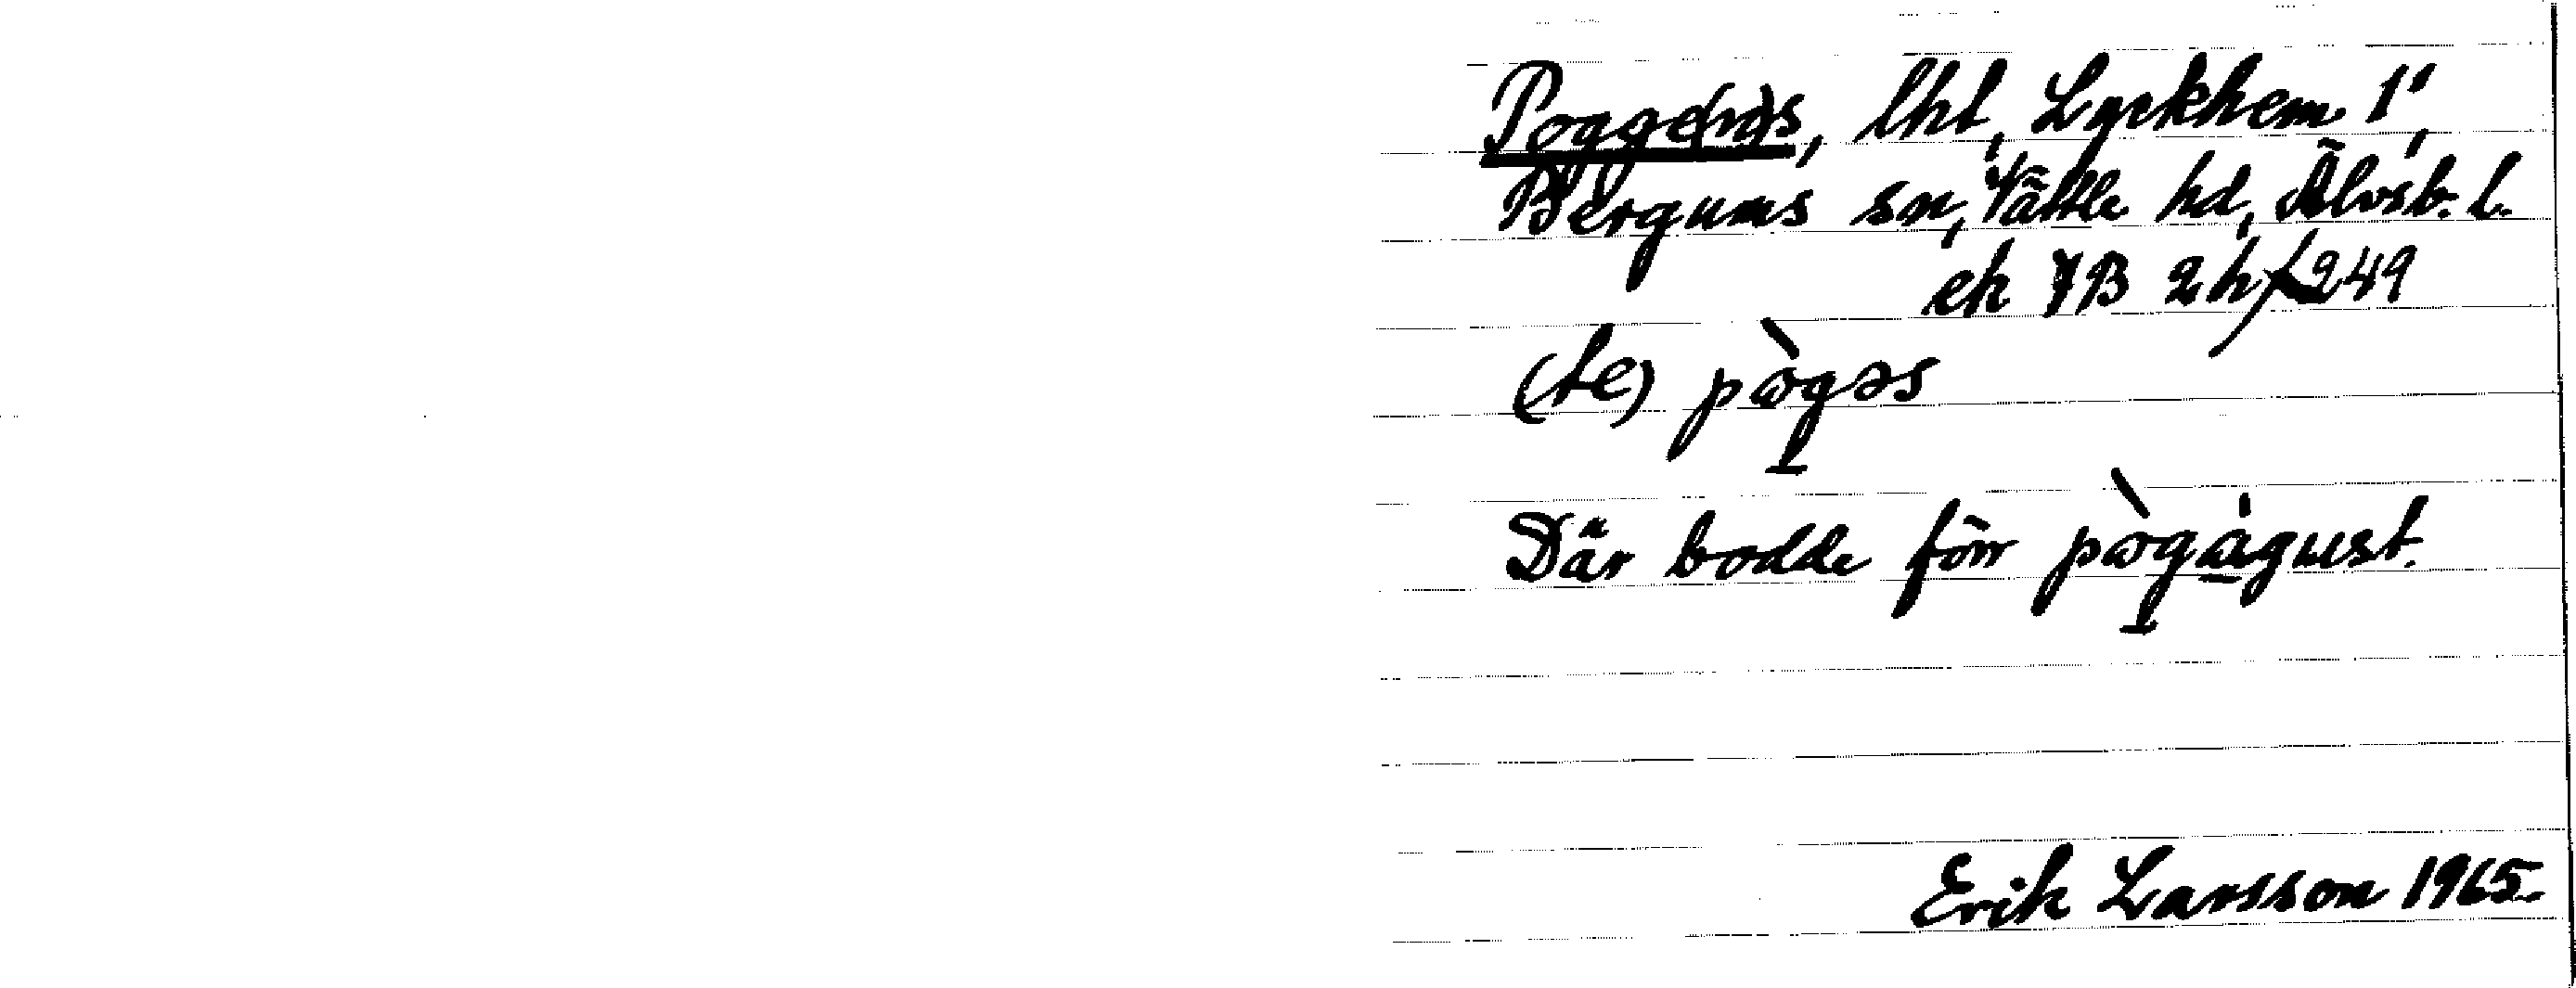 Pogge(n)s, lht, Lyckhem 1¹,
Bergums sn, Vättle hd, Älvsb. l.
ek 7B 2h/249
(te) pògəs
Där bodde förr pògàgust.
Erik Larsson 1965